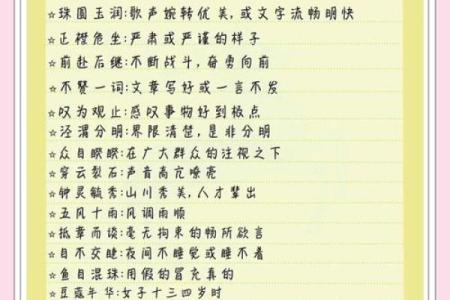 ☆珠圆玉润:歌声婉转优美,或文字流畅明快
☆正襟危坐:严肃或严谨的样子
☆前赴后继:不断战斗,奋勇向前
☆不赞一词:文章写好或一言不发
☆叹为观止:感叹事物好到极点
☆泾渭分明:界限清楚,是非分明
☆众目睽睽:在广大群众的注视之下
☆穿云裂石:声音高亢嘹亮
☆钟灵毓秀:山川秀美,人才辈出
☆五风十雨:风调雨顺
☆抵掌而谈:毫无拘束的畅所欲言
☆目不交睫:夜间不睡觉或睡不着
☆鱼目混珠:用假的冒充真的
☆豆蔻年华:女子十三四岁时